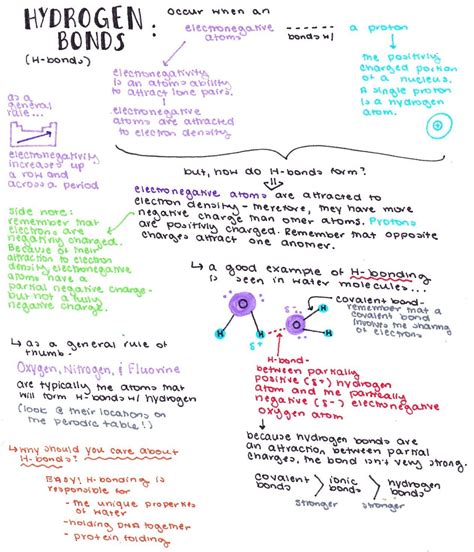 HYDROGEN BONDS:
(H-bonds)
occur when an
electronegative atoms
bonds w/
a proton
electronegativity
is an atoms ability
to attract lone pairs.
electronegative
atoms are attracted
to electron density
the positively
charged portion
of a nucleus.
A single proton
is a hydrogen
atom.
+
as a
general
rule...
electronegativity
increases up
a row and
across a period
but, how do H-bonds form?
electronegative atoms are attracted to
electron density - therefore, they have more
negative charge than other atoms. Protons
are positively charged. Remember that opposite
charges attract one another.
side note:
remember that
electrons are
negatively charged.
Because of their
attraction to electron
density electronegative
atoms have a
partial negative charge -
but not a fully
negative charge.
↳ a good example of H-bonding
is seen in water molecules...
O
H
H
δ+
δ-
O
H
H
covalent bond-
remember that a
covalent bond
involves the sharing
of electrons
H-bond-
between partially
positive (δ+) hydrogen
atom and the partially
negative (δ-) electronegative
oxygen atom
↳ as a general rule of
thumb...
Oxygen, Nitrogen, & Fluorine
are typically the atoms that
will form H-bonds w/ hydrogen
(look @ their locations on
the periodic table!)
because hydrogen bonds are
an attraction between partial
charges, the bond isn't very strong.
covalent bonds > ionic bonds > hydrogen bonds
stronger stronger
↳ Why should you care about
H-bonds?
EASY! H-bonding is
responsible for
- the unique properties
of water
- holding DNA together
- protein folding